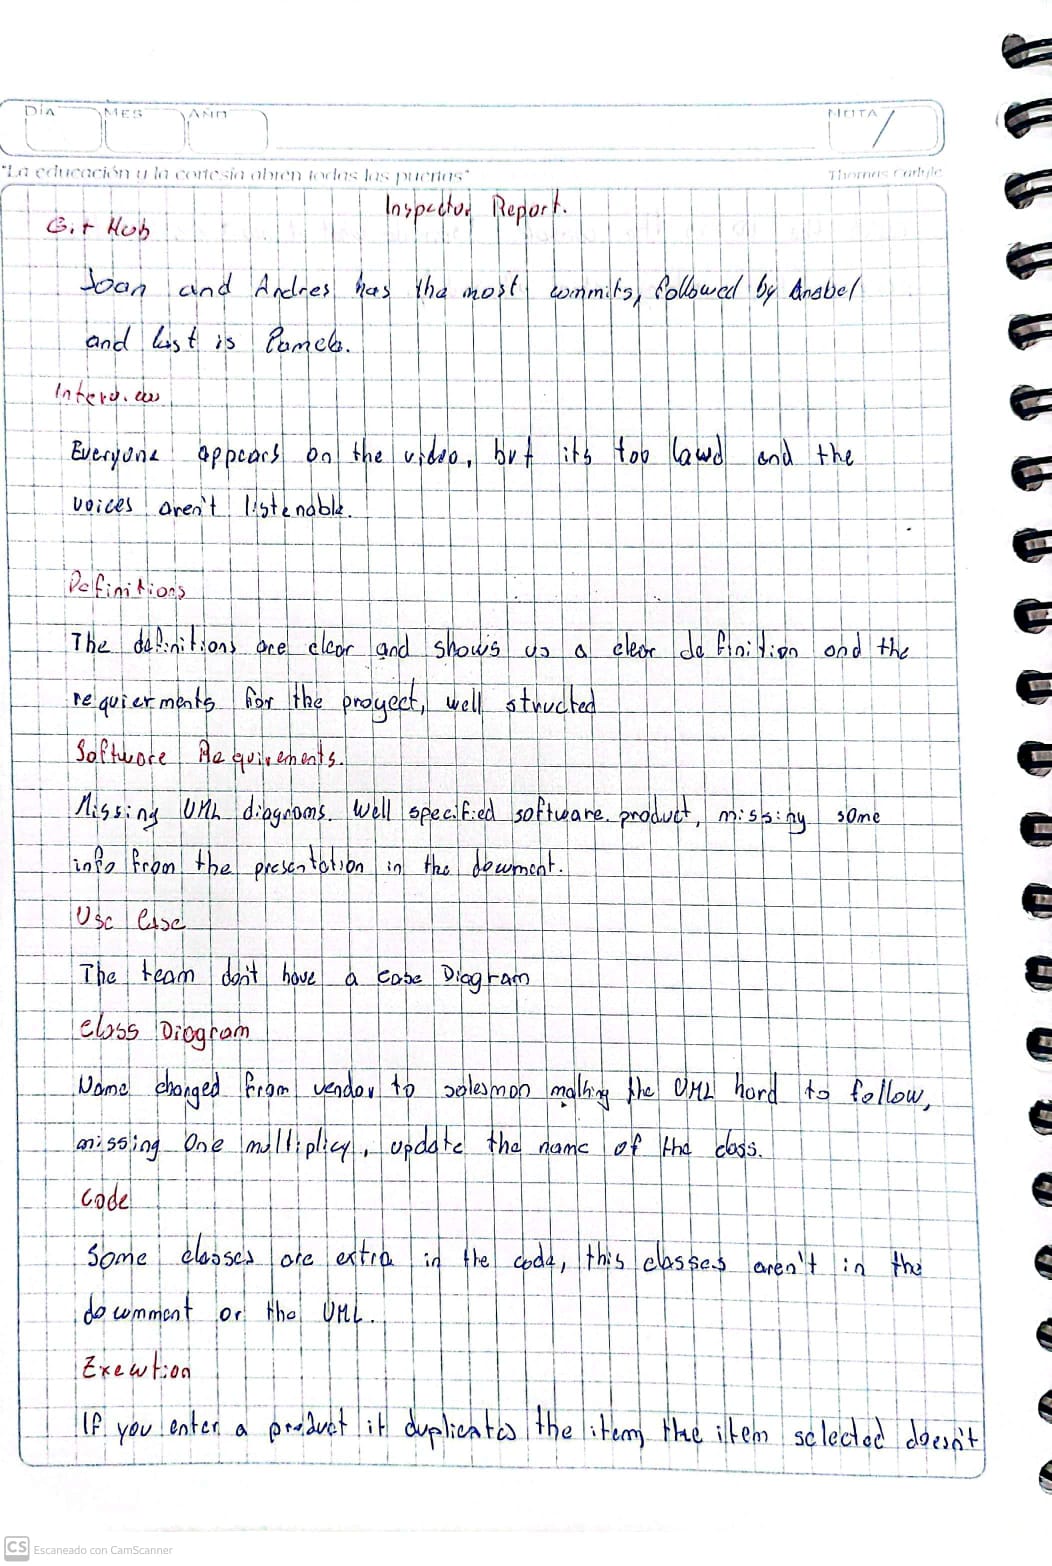 DÍA MES AÑO NOTA
"La educación y la cortesía abren todas las puertas" Thomas Carlyle
Inspector Report.
Git Hub
Joan and Andres has the most commits, followed by Anabel
and last is Pamela.
Interview
Everyone appears on the video, but its too lawd and the
voices aren't listenable.
Definitions
The definitions are clear and shows us a clear definition and the
requierments for the proyect, well structed
Software Requirements.
Missing UML diagrams. Well specified software product, missing some
info from the presentation in the document.
Use Case
The team don't have a case Diagram
Class Diagram
Name changed from vendor to salesman making the UML hard to follow,
missing One multiplicy, update the name of the class.
Code
Some classes are extra in the code, this classes aren't in the
document or the UML.
Execution
If you enter a product it duplicates the item, the item selected doesn't
CS Escaneado con CamScanner